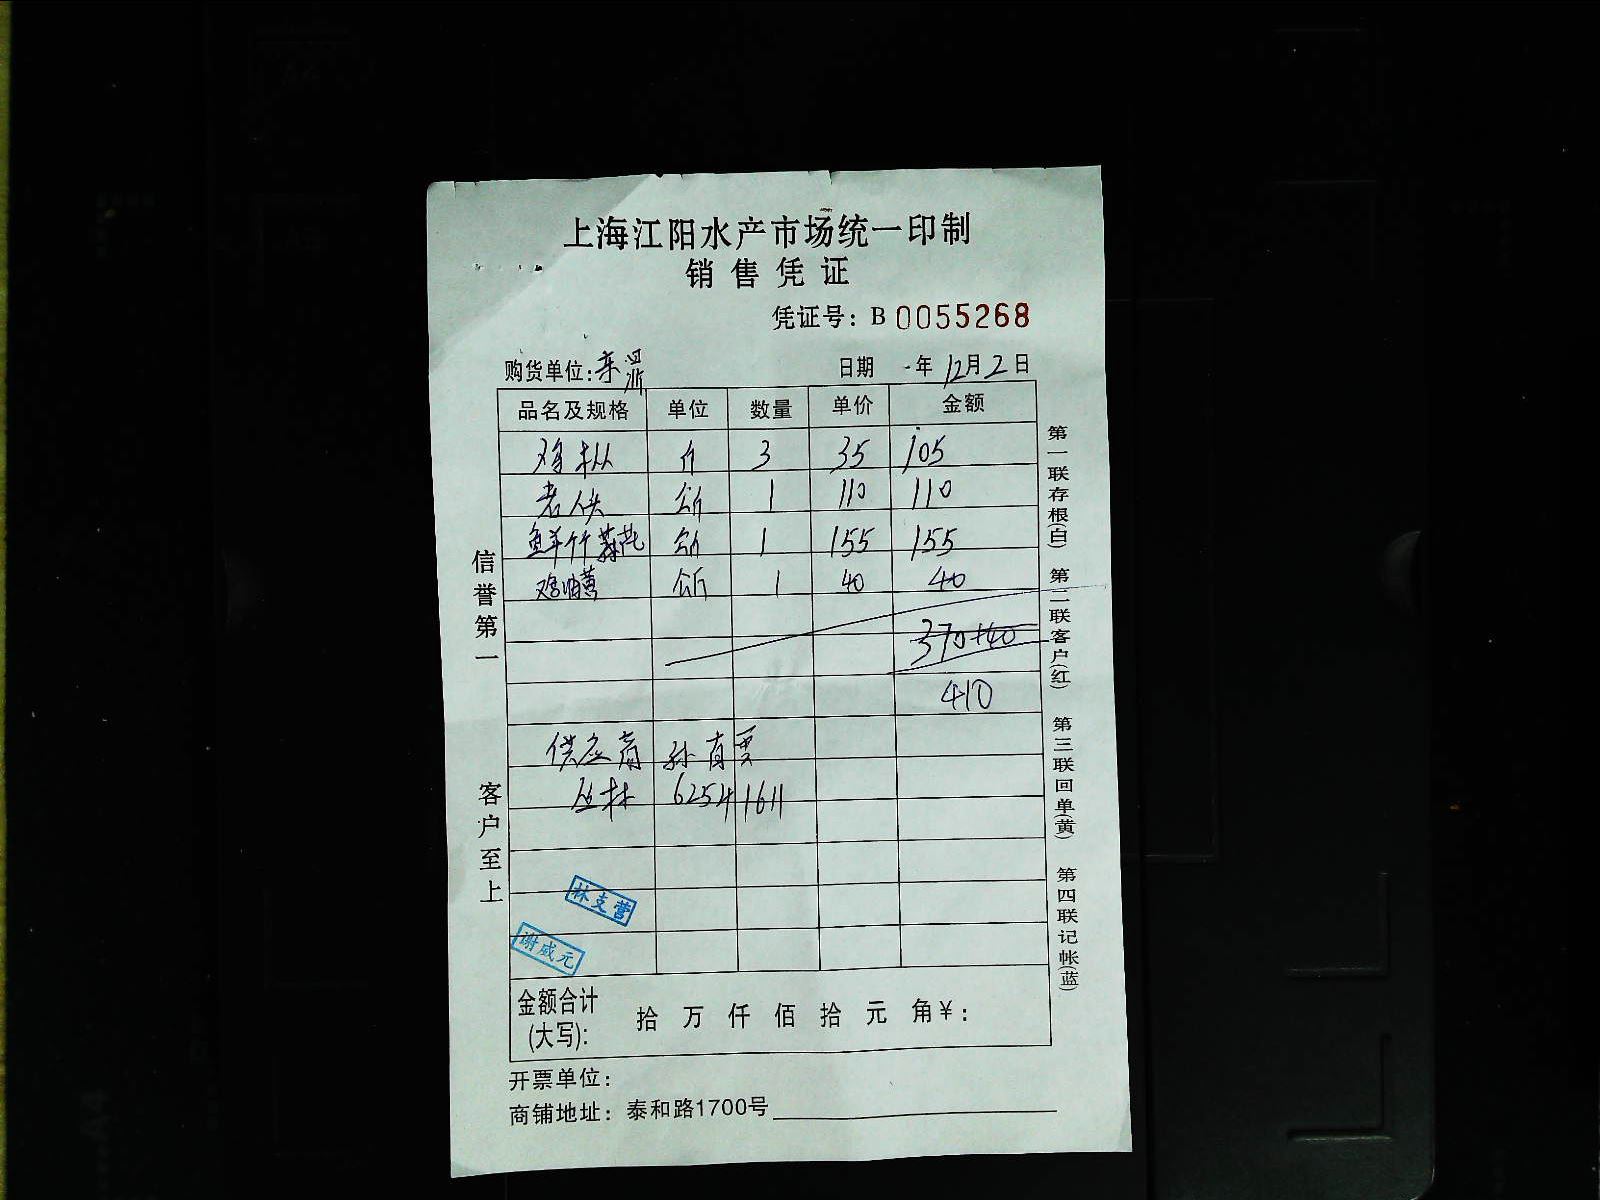 上海江阳水产市场统一印制
销售凭证
凭证号：B 0055268
购货单位：
日期 年 12月 2 日
品名及规格 单位 数量 单价 金额
鸡枞 斤 3 35 105
老人头 公斤 1 110 110
鲜竹荪 公斤 1 155 155
鸡油黄 公斤 1 40 40
370+40
410
供应商 孙有票
丛林 62541611
林支营
谢威元
金额合计
(大写)：
拾 万 仟 佰 拾 元 角￥：
开票单位：
商铺地址：泰和路1700号
信誉第一
客户至上
第一联存根(白)
第二联客户(红)
第三联回单(黄)
第四联记帐(蓝)